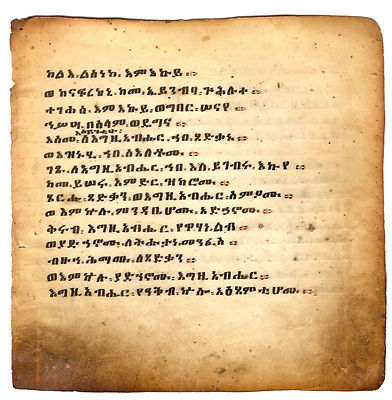 ክልእ፡ልሳነከ፡እምእኩይ።
ወከናፍሪከኒ፡ከመ፡ኢይንብባ፡ጕሕሉተ።
ተገሐሥ፡እምእኩይ፡ወግበር፡ሠናየ።
ኅሥሣ፡ለሰላም፡ወዴግና።
አዕይንቲሁ፡
እስመ፡ለእግዚአብሔር፡ኀበ፡ጻድቃኑ።
ወእዝኑሂ፡ኀበ፡ስእለቶሙ።
ገጹ፡ለእግዚአብሔር፡ኀበ፡እለ፡ይገብሩ፡እኩየ።
ከመ፡ይሠሩ፡እምድር፡ዝክሮሙ።
ጸርሑ፡ጻድቃን፡ወእግዚአብሔር፡ሰምዖሙ።
ወእምኵሉ፡ምንዳቤሆሙ፡አድኀኖሙ።
ቅሩብ፡እግዚአብሔር፡ለየዋሃነ፡ልብ።
ወያድኅኖሙ፡ለትሑታነ፡መንፈስ።
ብዙኅ፡ሕማሞሙ፡ለጻድቃን።
ወእምኵሉ፡ያድኅኖሙ፡እግዚአብሔር።
እግዚአብሔር፡የዐቅብ፡ኵሎ፡አዕጽምቲሆሙ።